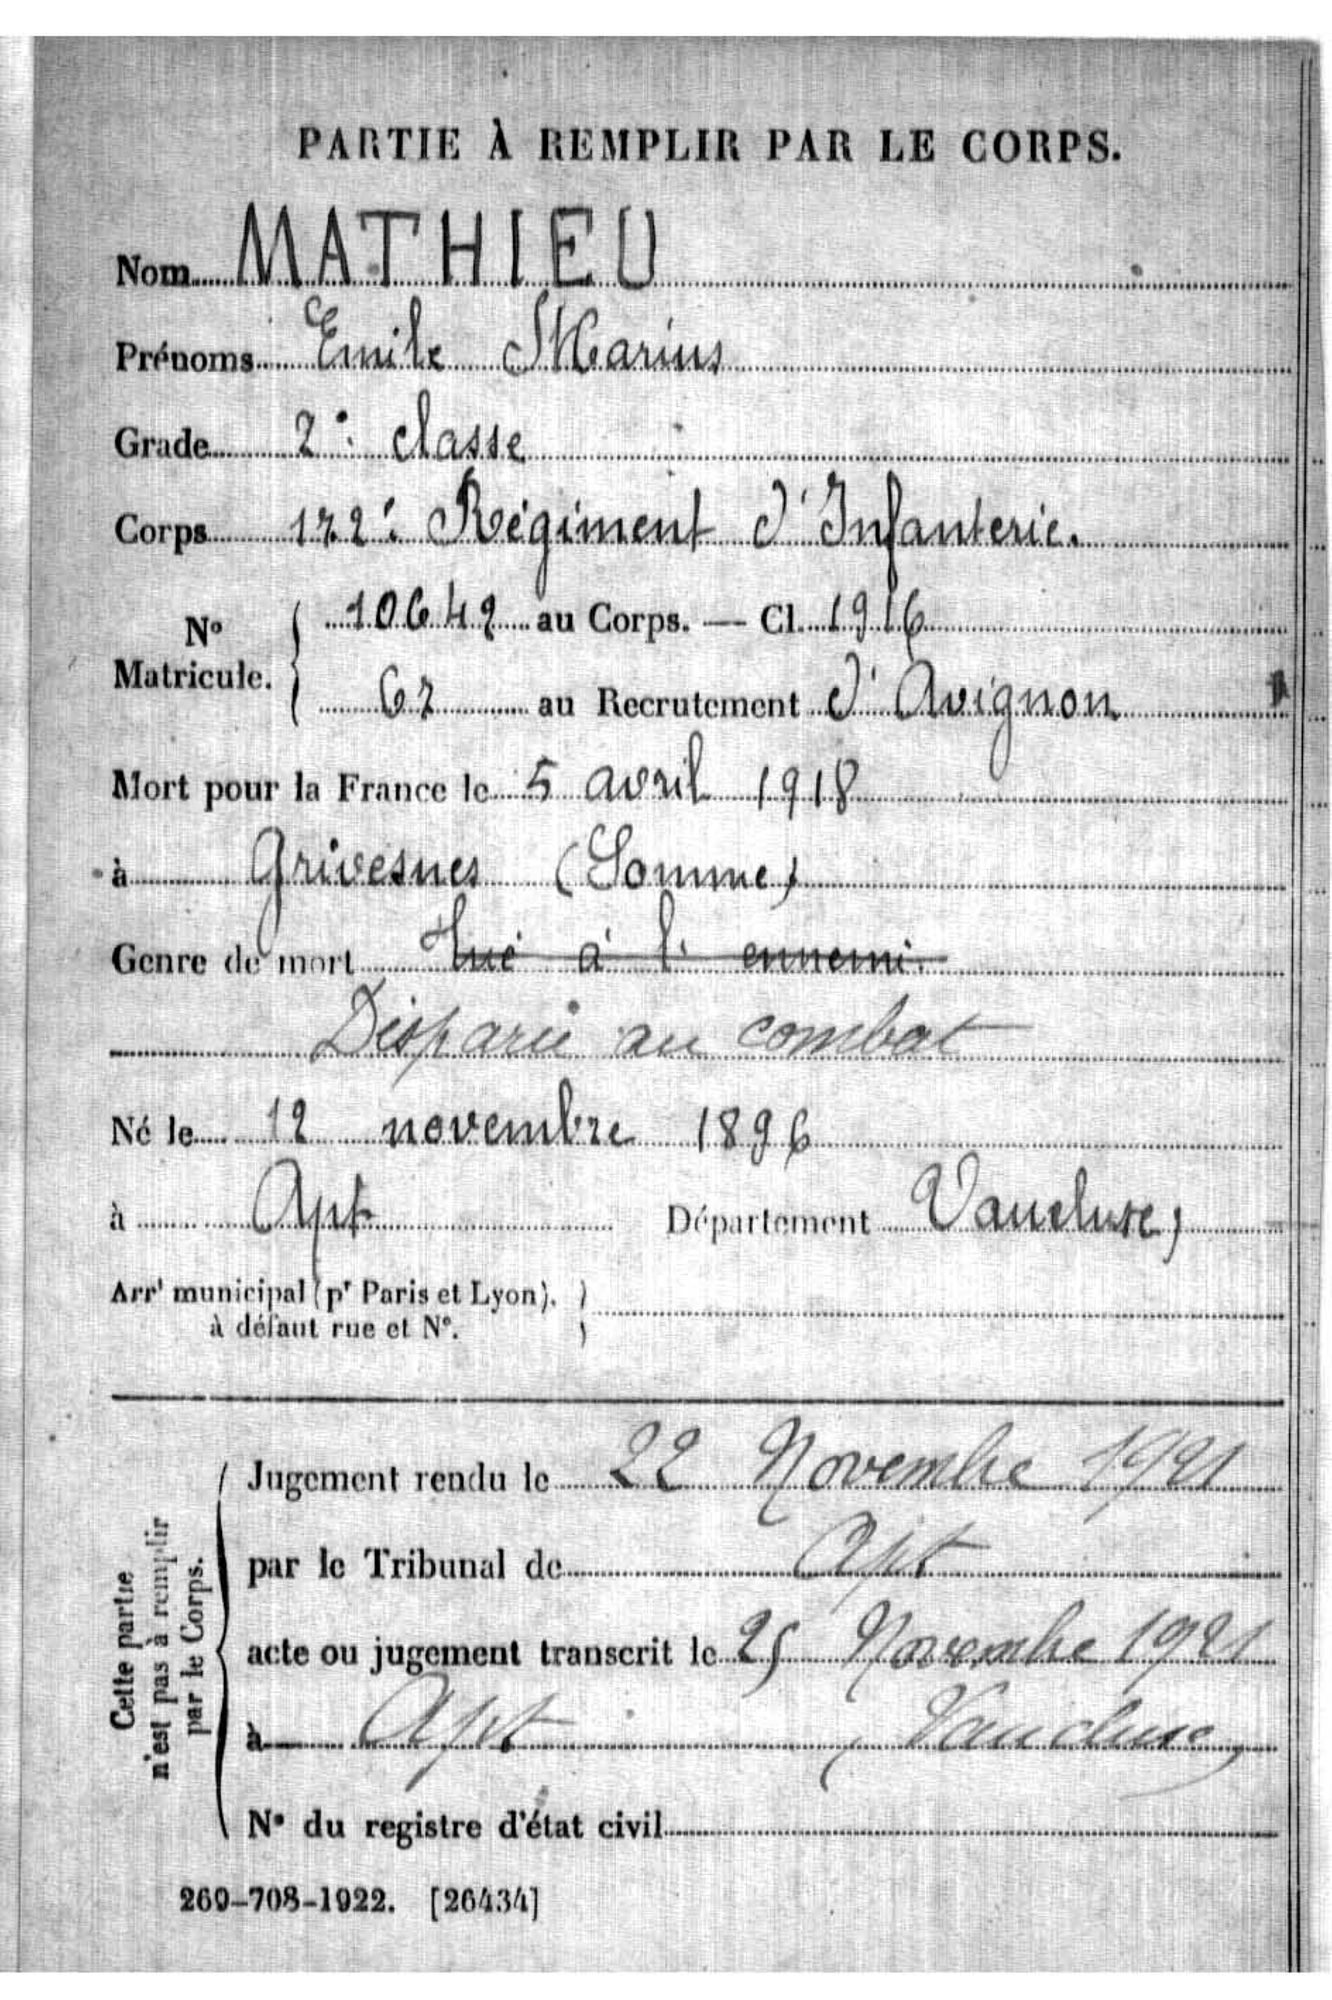 PARTIE À REMPLIR PAR LE CORPS.
Nom MATHIEU
Prénoms Emile Marius
Grade 2e classe
Corps 172e Régiment d'Infanterie.
No Matricule. 10642 au Corps. — Cl. 1916
67 au Recrutement d'Avignon
Mort pour la France le 5 avril 1918
à Grivesnes (Somme)
Genre de mort Tué à l'ennemi.
Disparu au combat
Né le 12 novembre 1896
à Apt Département Vaucluse)
Arrt municipal (pr Paris et Lyon),
à défaut rue et No.
Cette partie
n'est pas à remplir
par le Corps.
Jugement rendu le 22 Novembre 1921
par le Tribunal de Apt
acte ou jugement transcrit le 25 Novembre 1921
à Apt (Vaucluse)
No du registre d'état civil
269-708-1922. [26434]